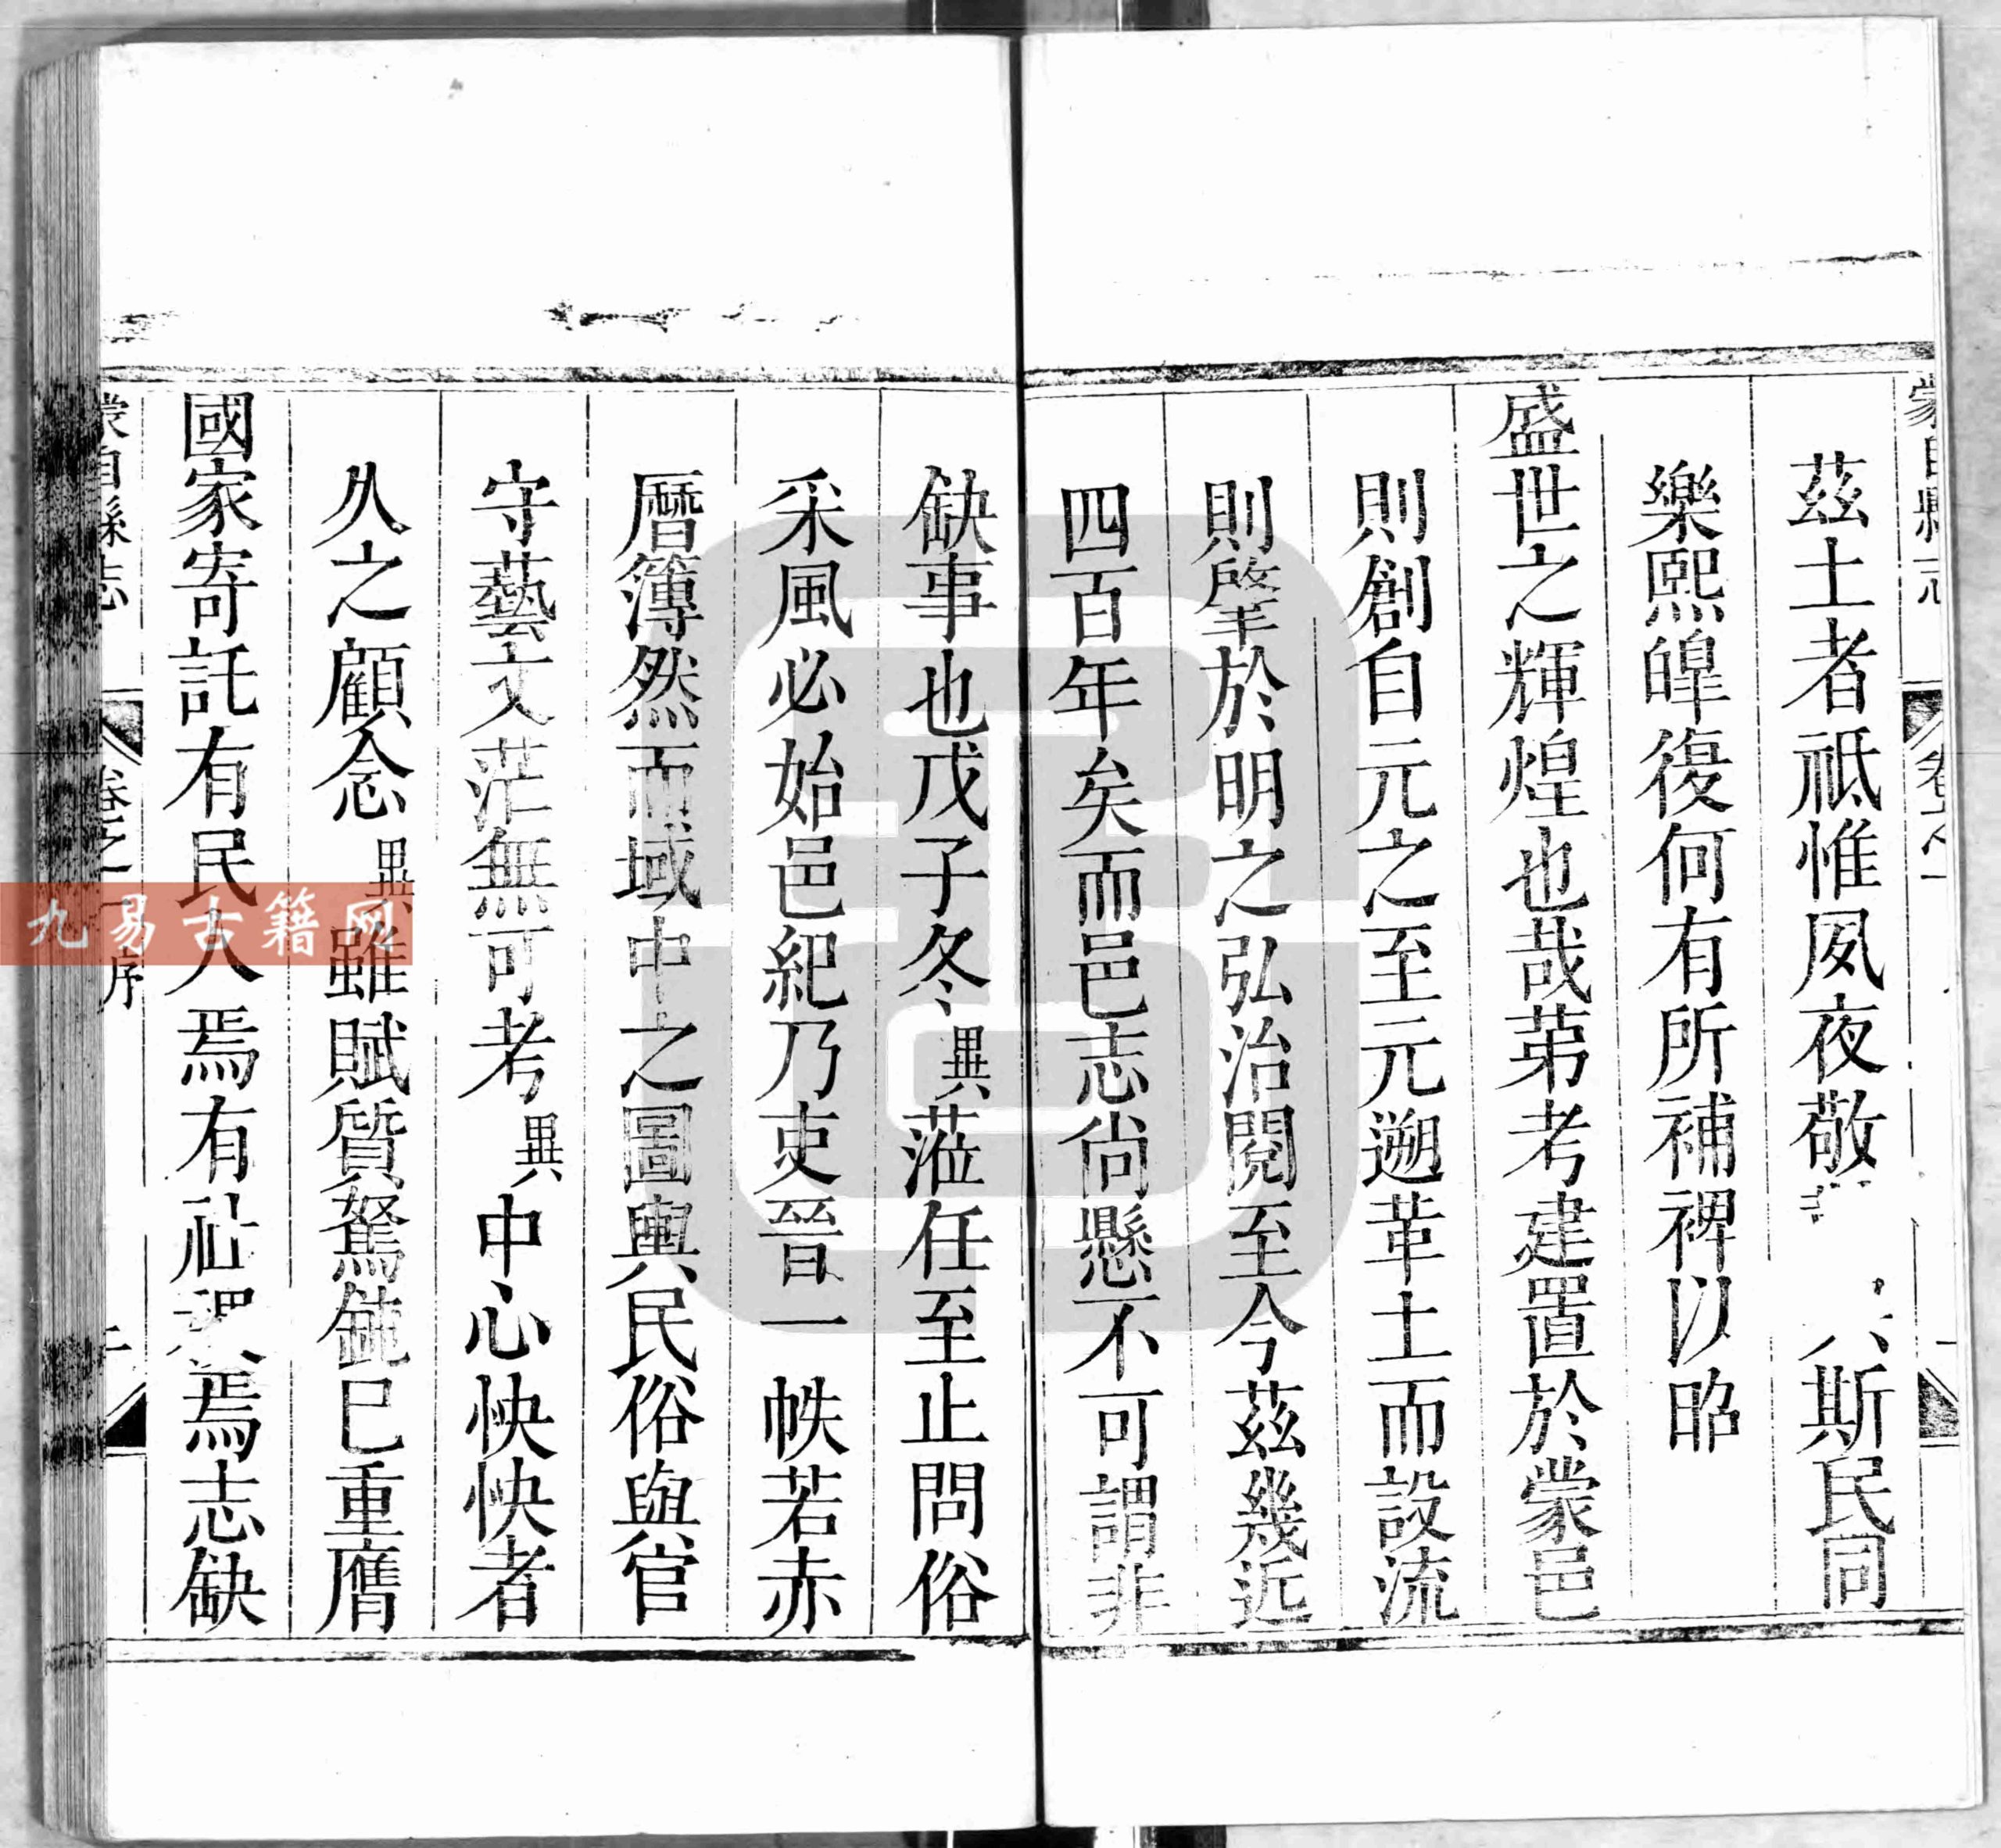 蒙自縣志 卷之一
茲土者祗惟夙夜敬 斯民同
樂熙皥復何有所補裨以昭
盛世之輝煌也哉苐考建置於蒙邑
則創自元之至元遡革土而設流
則肇於明之弘治閱至今茲幾近
四百年矣而邑志尙懸不可謂非
缺事也戊子冬異蒞任至止問俗
采風必始邑紀乃吏晉一帙若赤
曆簿然而域中之圖輿民俗與官
守藝文茫無可考異中心怏怏者
久之顧念異雖賦質駑鈍已重膺
國家寄託有民人焉有社稷焉志缺
蒙自縣志 卷之一 序
九易古籍网